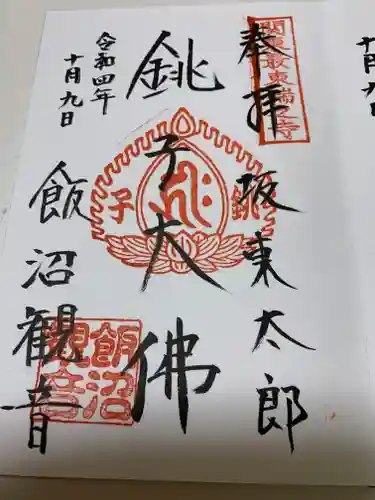 奉拝
坂東太郎
関東最東端之寺
銚子大佛
銚子
令和四年
十月九日
飯沼観音
飯沼観音
十月九日